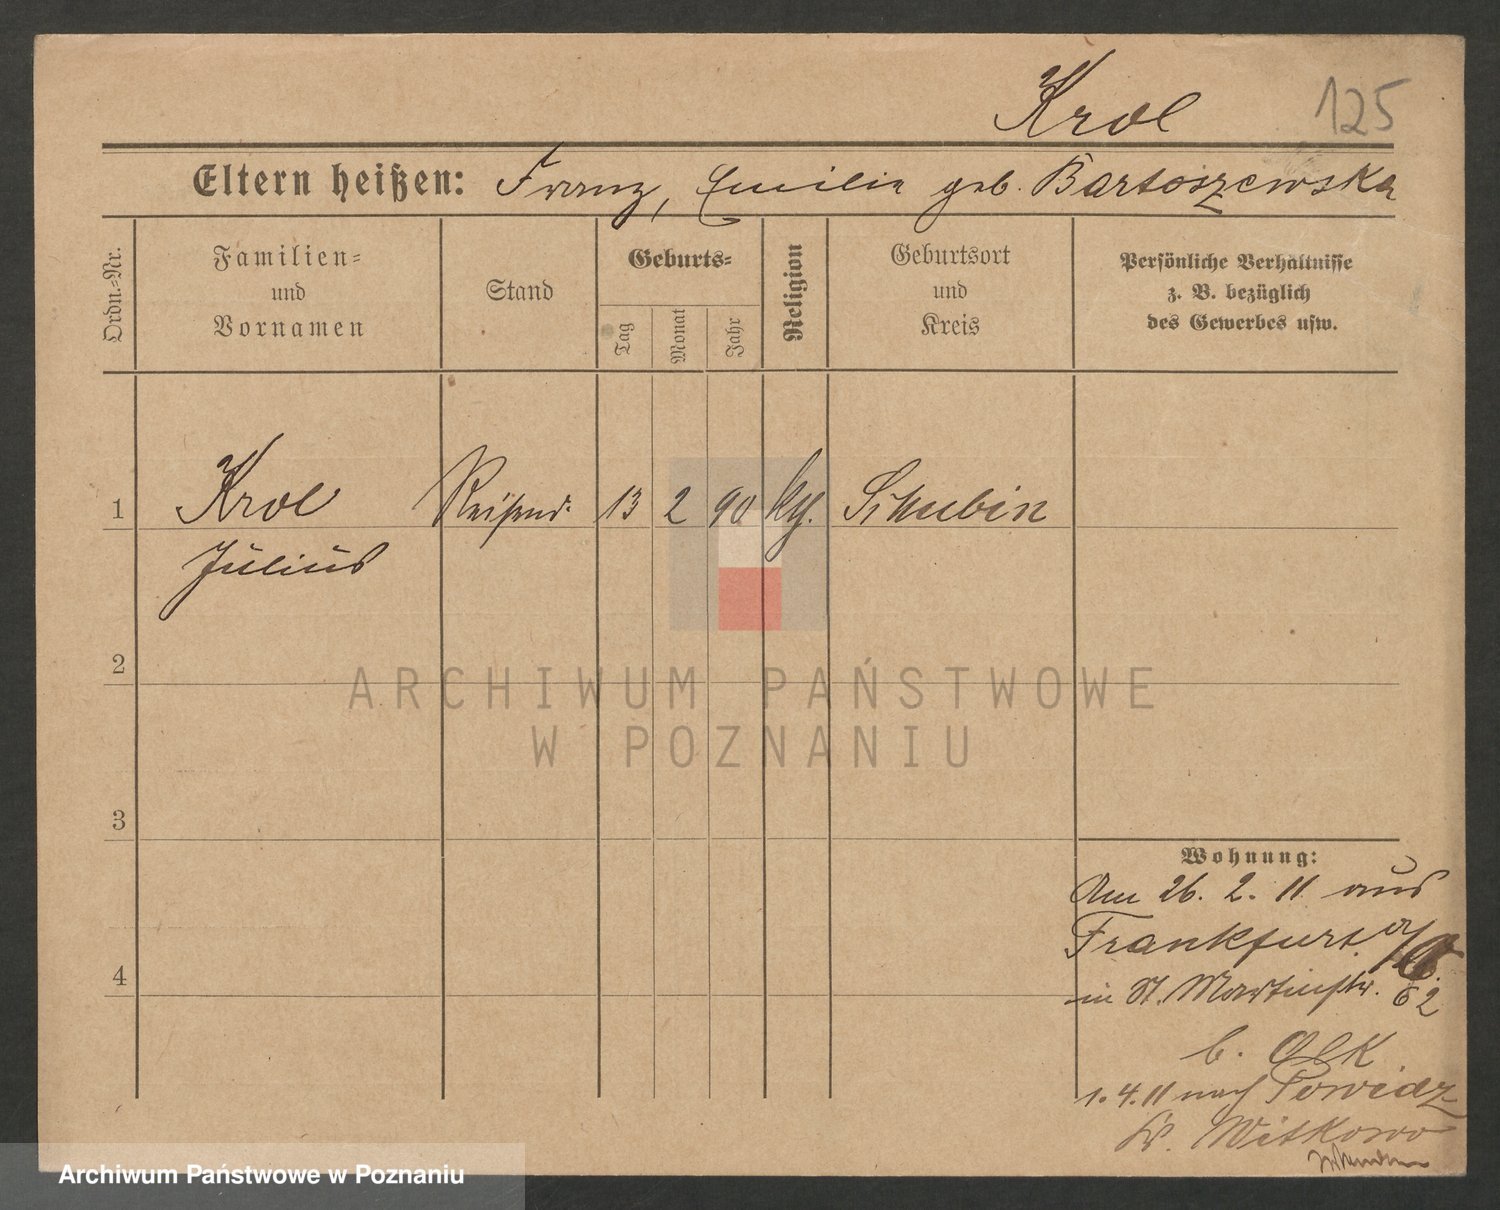 Krol
125
Eltern heißen: Franz, Emilie geb. Bartoszewska
Ordn.-Nr.
Familien-
und
Vornamen
Stand
Geburts-
Tag
Monat
Jahr
Religion
Geburtsort
und
Kreis
Persönliche Verhältnisse
z. B. bezüglich
des Gewerbes usw.
1 Krol Reisend. 13 2 90 kth. Schubin
Julius
2
3
4
Wohnung:
Am 26. 2. 11 aus
Frankfurt a/O.
in St. Martinstr. 62
b. Olk
1. 4. 11 nach Powidz
Kr. Witkowo
ARCHIWUM PAŃSTWOWE
W POZNANIU
Archiwum Państwowe w Poznaniu